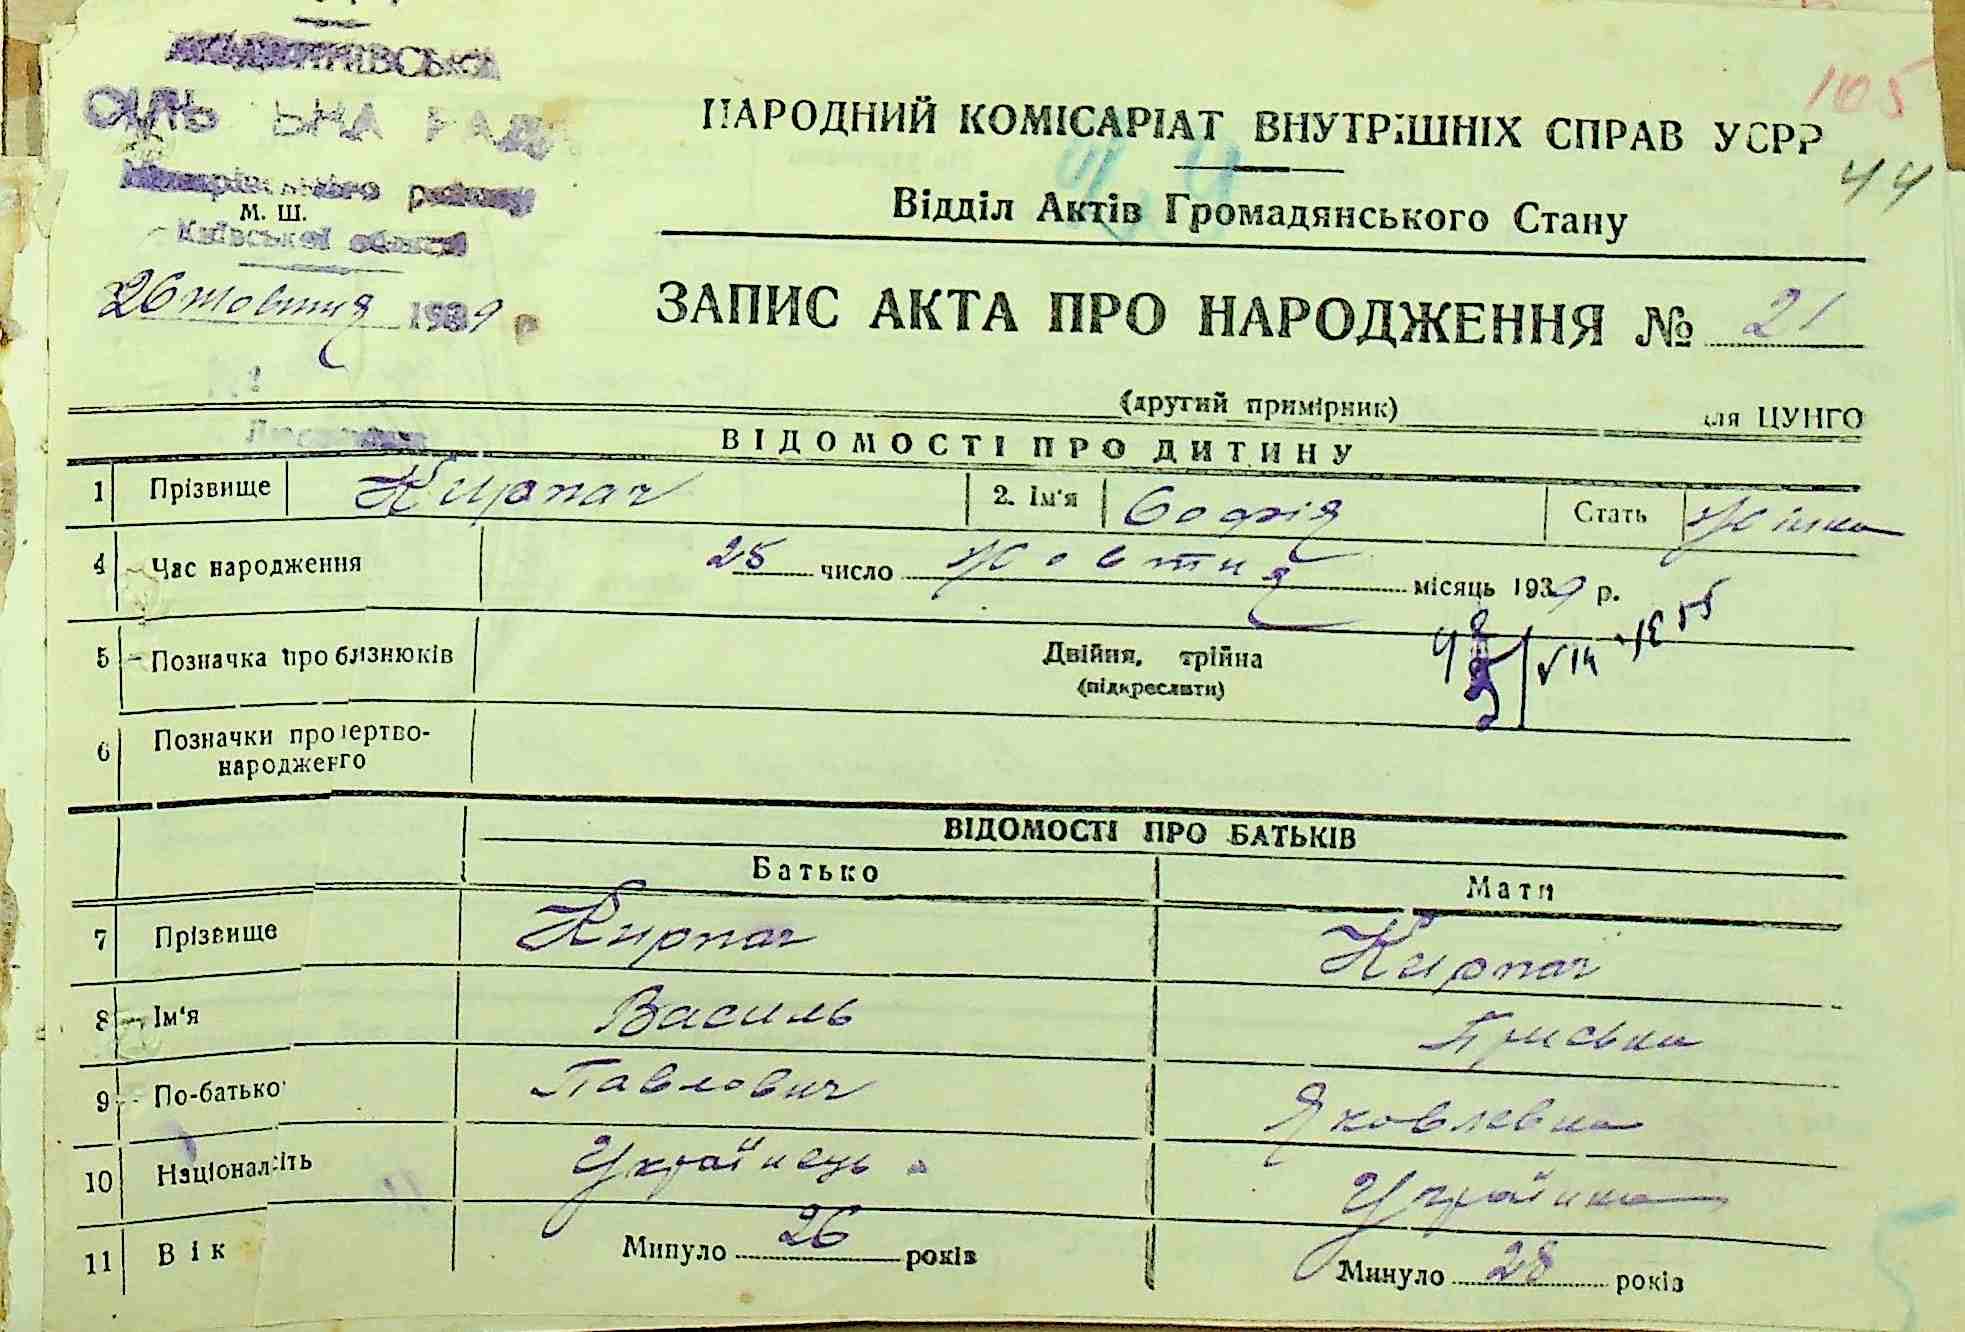 СІЛЬ ЬНА РАДА
району
М. Ш.
Київської області
26 жовтня 1939 р
105
44
НАРОДНИЙ КОМІСАРІАТ ВНУТРІШНІХ СПРАВ УСРР
Відділ Актів Громадянського Стану
ЗАПИС АКТА ПРО НАРОДЖЕННЯ № 21
(другий примірник) для ЦУНГО
ВІДОМОСТІ ПРО ДИТИНУ
1 Прізвище Кирпач 2. Ім'я Софія Стать Жінка
4 Час народження 25 число Жовтня місяць 1939 р.
5 Позначка про близнюків Двійня, трійна
(підкреслити)
6 Позначки про мертво-
народженого
ВІДОМОСТІ ПРО БАТЬКІВ
Батько Мати
7 Прізвище Кирпач Кирпач
8 Ім'я Василь Приська
9 По-батькові Павлович Яковлевна
10 Національність Українець Українка
11 Вік Минуло 26 років Минуло 28 років